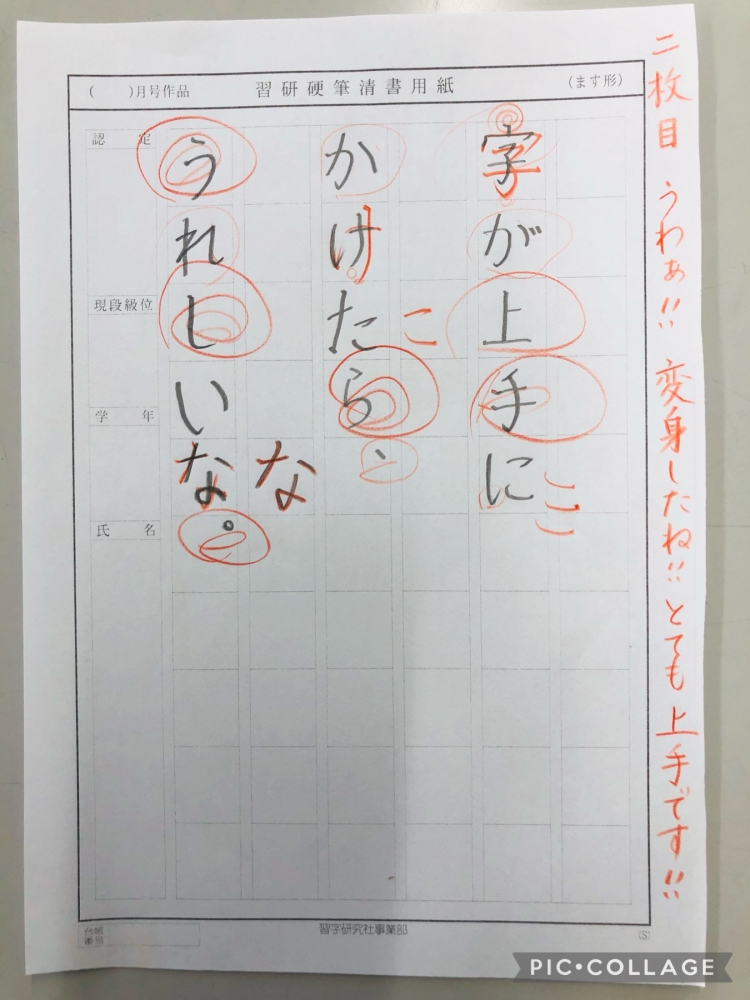 二枚目 うわぁ!! 変身したね!! とても上手です!!
( )月号作品 習研硬筆清書用紙 (ます形)
字が上手に
ここ
かけたら、
こ
うれしいな。
な
認定
現段級位
学年
氏名
台帳番号
習字研究社事業部
(S)
PIC•COLLAGE